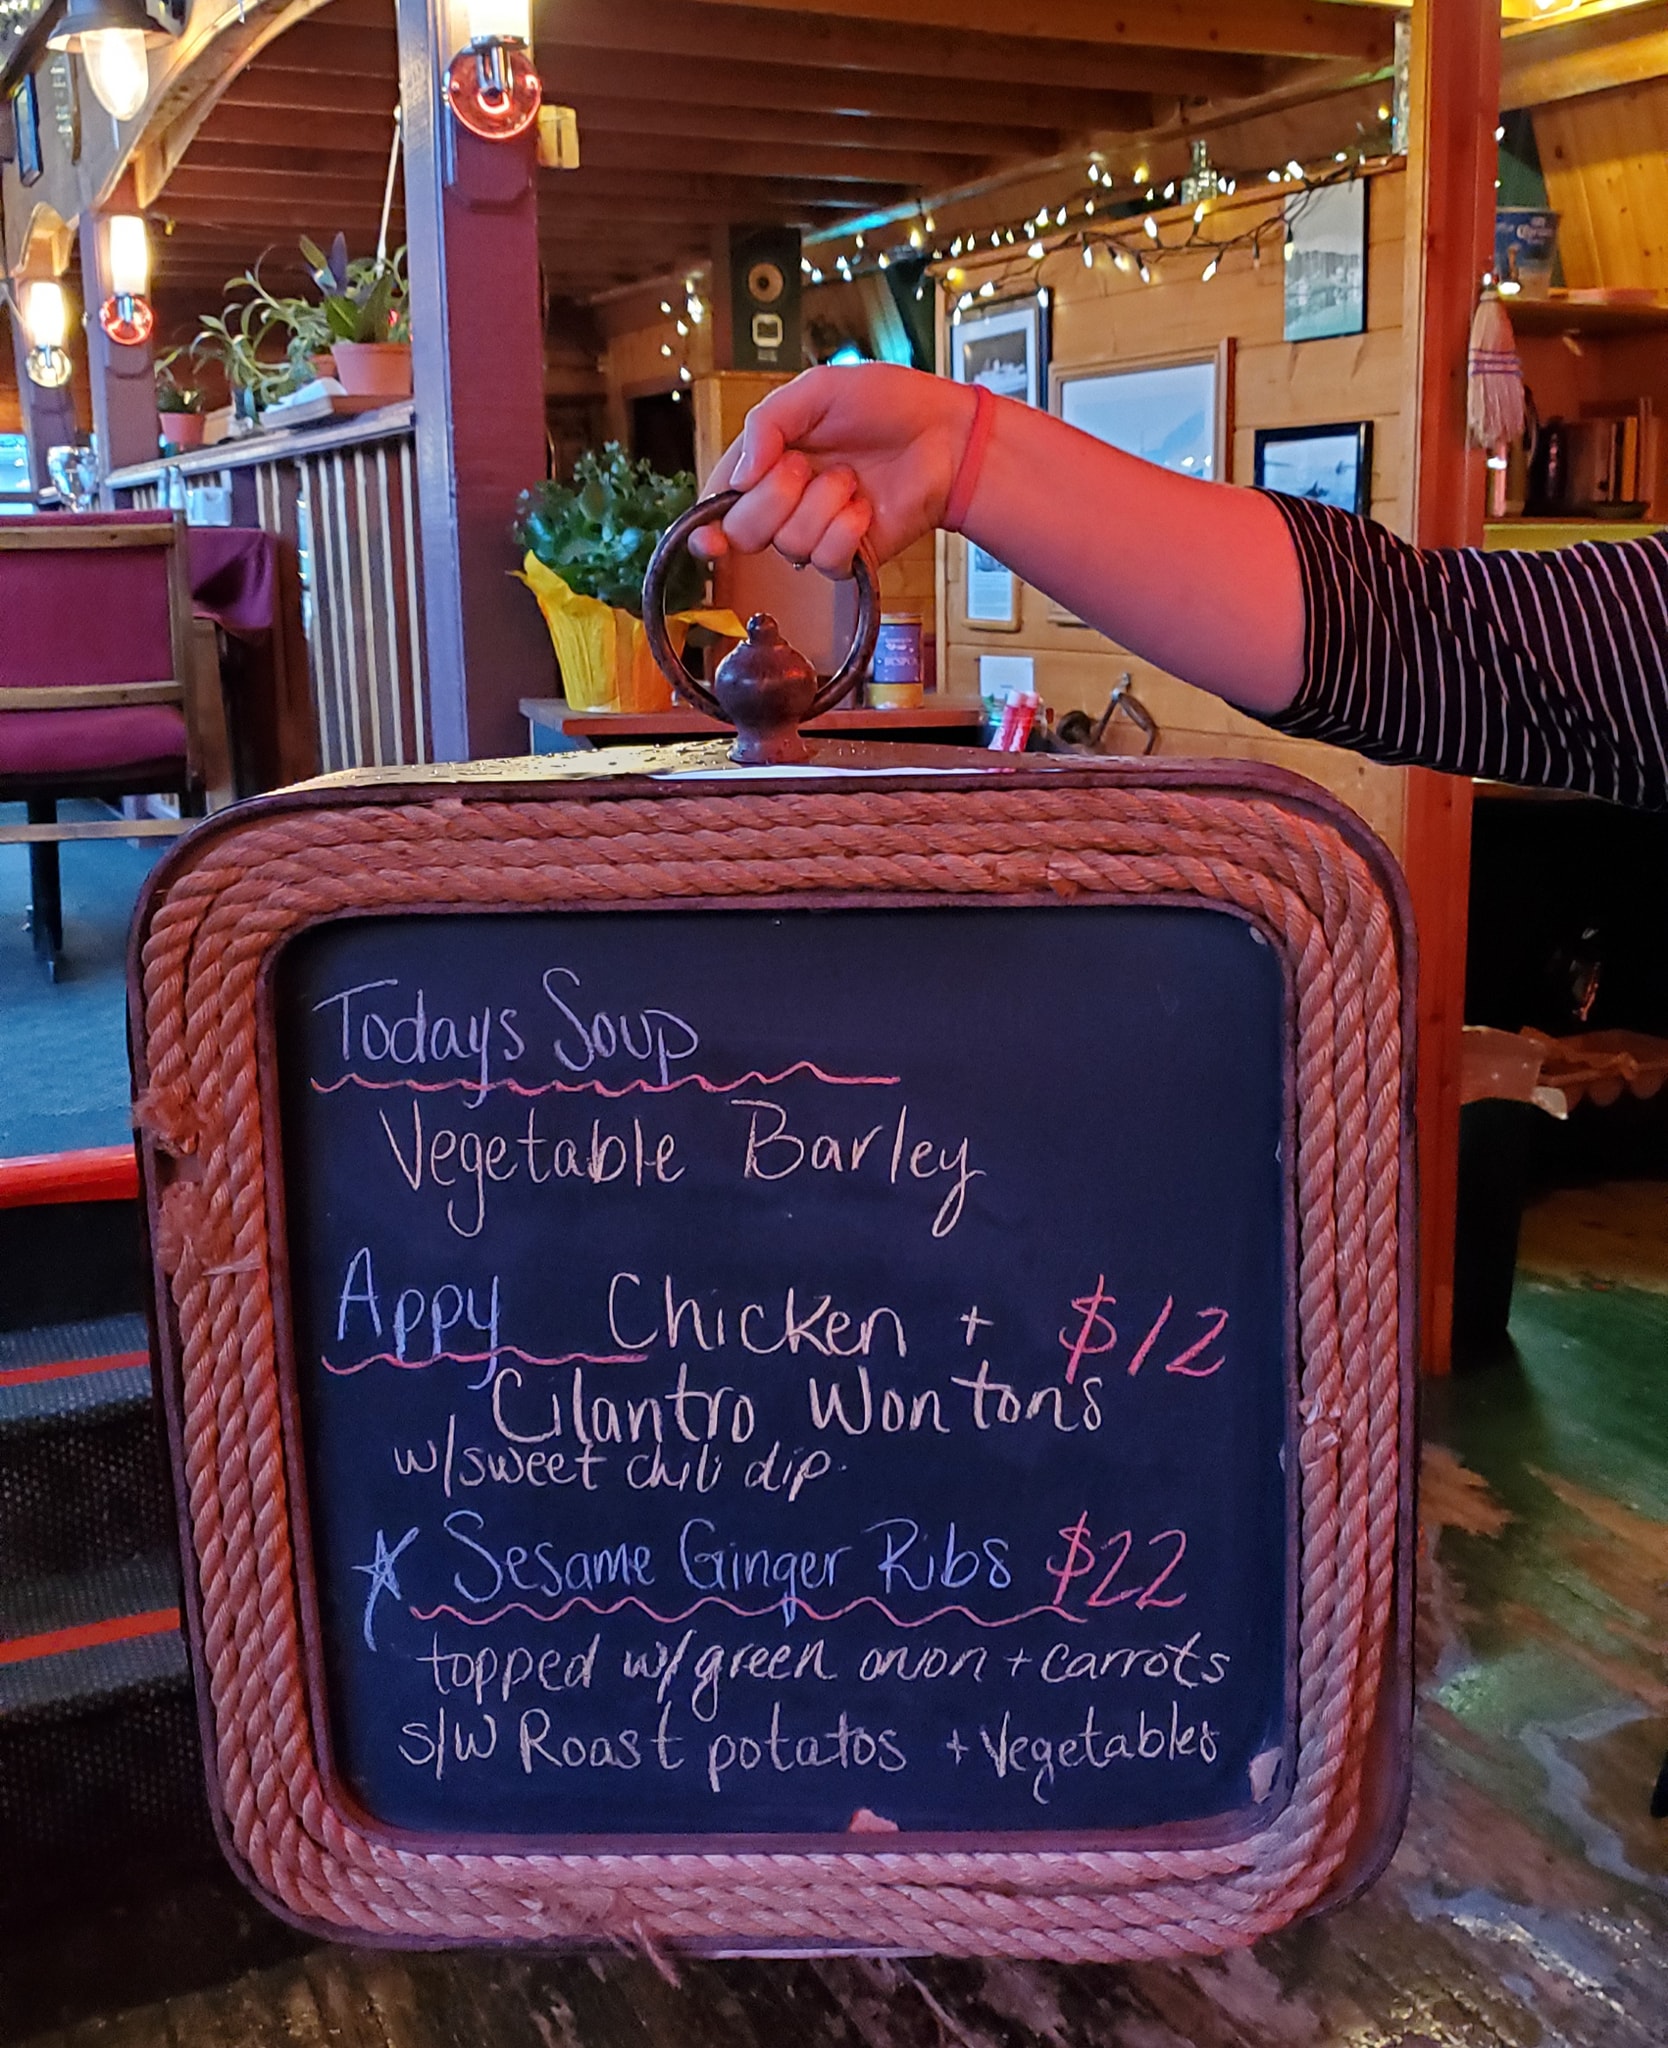 Todays Soup
Vegetable Barley
Appy Chicken + $12
Cilantro Wontons
w/sweet chili dip.
Sesame Ginger Ribs $22
topped w/green onion + carrots
s/w Roast potatos + Vegetables